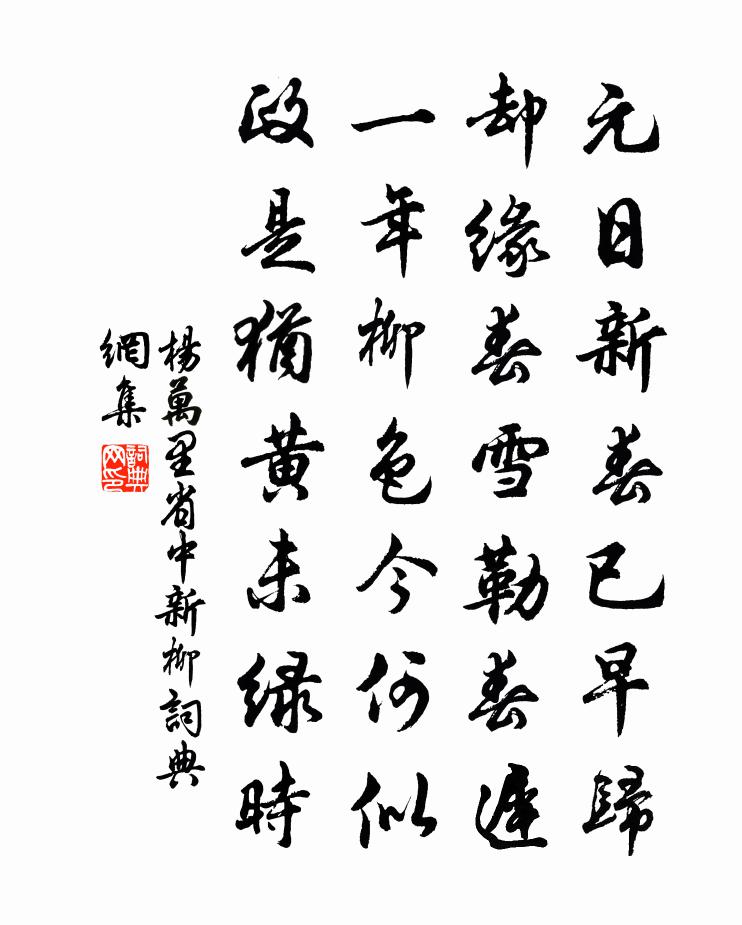 元日新春已早歸
却緣春雪勒春遲
一年柳色今何似
政是猶黃未綠時
楊萬里省中新柳詞典
網集
詞典
网印